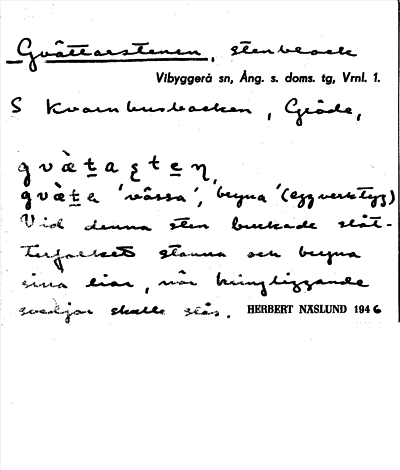 Gvättarstenen, stenblock
Vibyggerå sn, Ång. s. doms. tg, Vrnl. 1.
S Kvarnhusbacken, Gröde,
gvätaʂten
gväta 'vässa', bryna' (eggverktyg)
Vid denna sten brukade slåt-
terfolket stanna och bryna
sina liar, när kringliggande
svedjor skulle slås. HERBERT NÄSLUND 1946